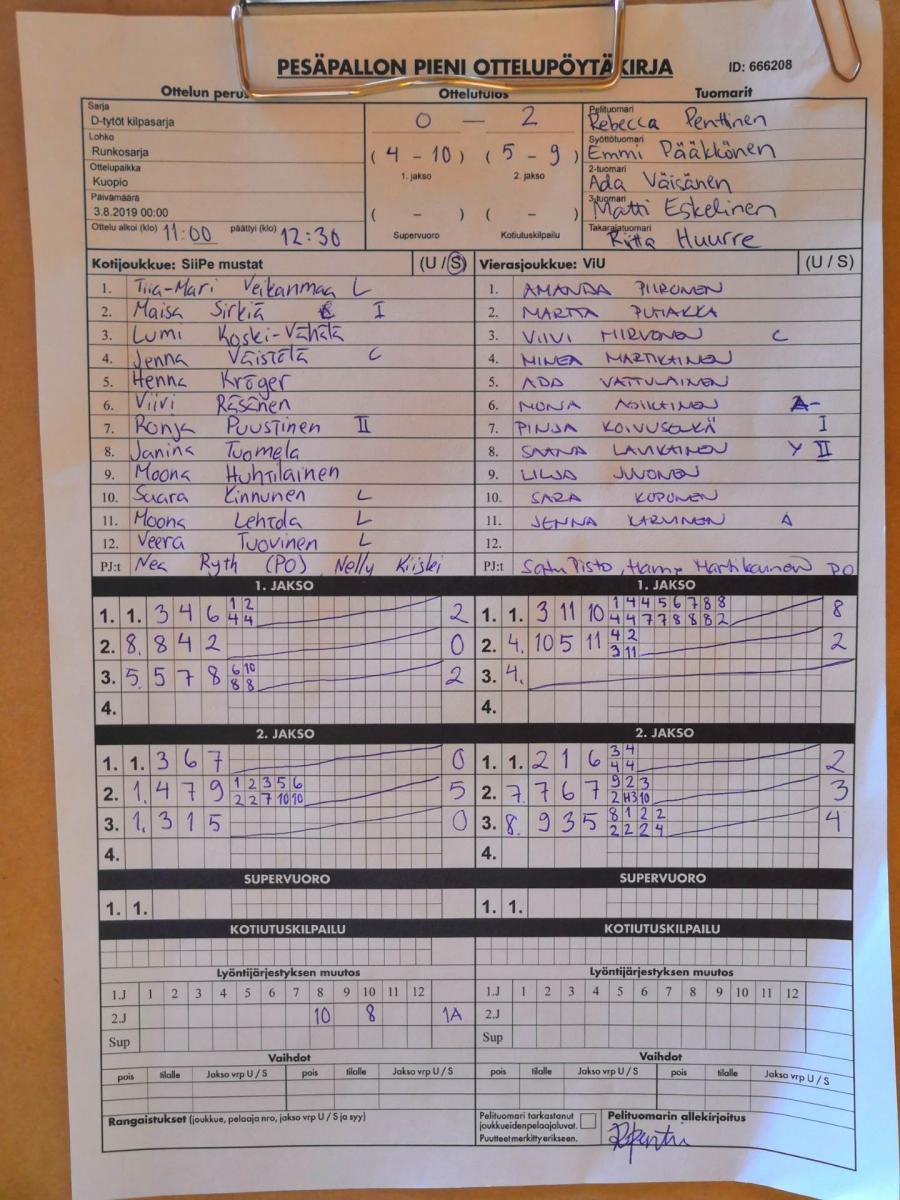 PESÄPALLON PIENI OTTELUPÖYTÄKIRJA ID: 666208
Ottelun perus Ottelutulos Tuomarit
Sarja
D-tytöt kilpasarja
Lohko
Runkosarja
Ottelupaikka
Kuopio
Päivämäärä
3.8.2019 00:00
Ottelu alkoi (klo) 11:00 päättyi (klo) 12:30
0 — 2
( 4 - 10 ) ( 5 - 9 )
1. jakso 2. jakso
( - ) ( - )
Supervuoro Kotiutuskilpailu
Pelituomari
Rebecca Penttinen
Syöttötuomari
Emmi Pääkkönen
2-tuomari
Ada Väisänen
3-tuomari
Matti Eskelinen
Takarajatuomari
Riitta Huurre
Kotijoukkue: SiiPe mustat (U / S)
1. Tiia-Mari Veikanmaa L
2. Maisa Sirkiä I
3. Lumi Koski-Vähälä
4. Jenna Väistelä C
5. Henna Kröger
6. Viivi Räsänen
7. Ronja Puustinen II
8. Janina Tuomela
9. Moona Huhtilainen
10. Saara Kinnunen L
11. Moona Lehtola L
12. Veera Tuovinen L
PJ:t Nea Ryth (PO) Nelly Kiiski
Vierasjoukkue: ViU (U / S)
1. AMANDA PIIRONEN
2. MARTTA PUTAKKA
3. VIIVI HIRVONEN C
4. MINEA MARTIKAINEN
5. ADA VATTULAINEN
6. MONA ASIKAINEN
7. PINJA KOIVUSELKÄ I
8. SAANA LAVIKAINEN Y II
9. LILJA JUVONEN
10. SARA KOPONEN
11. JENNA KARVINEN A
12.
PJ:t Satu Pisto, Hannu Martikainen PO
1. JAKSO
1. 1. 3 4 6 1 2 2
4 4
2. 8. 8 4 2 0
3. 5. 5 7 8 6 10 2
8 8
4.
1. JAKSO
1. 1. 3 11 10 1 4 4 5 6 7 8 8 8
4 4 7 7 8 8 8 2
2. 4. 10 5 11 4 2 2
3 11
3. 4.
4.
2. JAKSO
1. 1. 3 6 7 0
2. 1. 4 7 9 1 2 3 5 6 5
2 2 7 10 10
3. 1. 3 1 5 0
4.
2. JAKSO
1. 1. 2 1 6 3 4 2
4 4
2. 7. 7 6 7 9 2 3 3
2 H3 10
3. 8. 9 3 5 8 1 2 2 4
2 2 2 4
4.
SUPERVUORO SUPERVUORO
1. 1. 1. 1.
KOTIUTUSKILPAILU KOTIUTUSKILPAILU
Lyöntijärjestyksen muutos Lyöntijärjestyksen muutos
1.J 1 2 3 4 5 6 7 8 9 10 11 12 1.J 1 2 3 4 5 6 7 8 9 10 11 12
2.J 10 8 1A 2.J
Sup Sup
Vaihdot Vaihdot
pois tilalle Jakso vrp U / S pois tilalle Jakso vrp U / S pois tilalle Jakso vrp U / S pois tilalle Jakso vrp U / S
Rangaistukset (joukkue, pelaaja nro, jakso vrp U / S ja syy)
Pelituomari tarkastanut
joukkueidenpelaajaluvat.
Puutteet merkitty erikseen.
Pelituomarin allekirjoitus